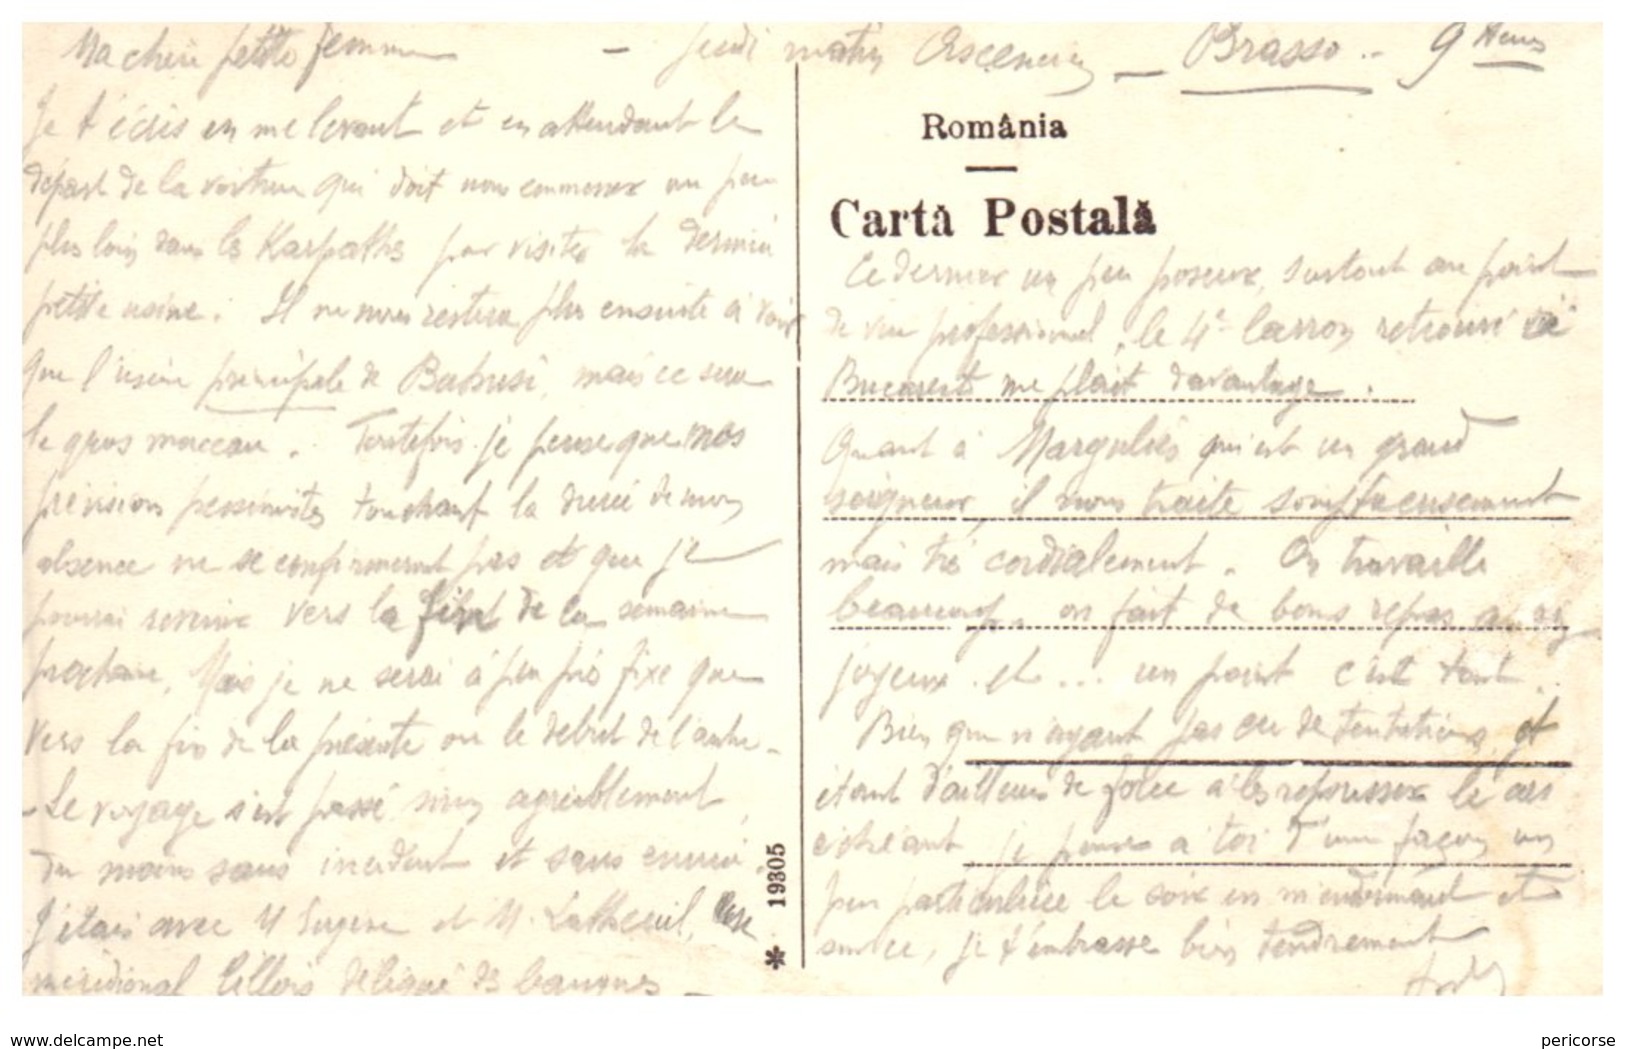 Ma chère petite femme — Jeudi matin Ascension — Brasso — 9 heures
Je t'écris en me levant et en attendant le
départ de la voiture qui doit nous emmener un peu
plus loin dans les Karpathes pour visiter la dernière
petite usine. Il ne nous restera plus ensuite à voir
que l'usine principale de Babusi, mais ce sera
le gros morceau. Toutefois je pense que nos
prévisions pessimistes touchant la durée de mon
absence ne se confirmeront pas et que je
pourrai revenir vers la fin de la semaine
prochaine, Mais je ne serai à peu près fixé que
vers la fin de la présente ou le début de l'autre.
- Le voyage s'est passé agréablement,
du moins sans incident et sans ennui
J'étais avec M Eugène et M.
méridional Lillois délégué des banques —
România
Cartă Postală
Ce dernier un peu poseur, surtout au point
de vue professionnel, le 4e larron retrouvé à
Bucarest me plait davantage.
Quant à Margulies qui est un grand
seigneur, il nous traite somptueusement
mais très cordialement. On travaille
beaucoup, on fait de bons repas
joyeux et ... un point c'est tout.
Bien que n'ayant pas eu de tentations et
étant d'ailleurs de force à les repousser le cas
échéant je pense à toi d'une façon un
peu particulière le soir en m'endormant et
sur ce, je t'embrasse bien tendrement
* 19305
www.delcampe.net
pericorse